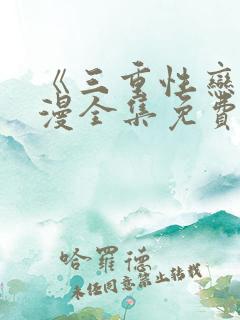 《三重性戀
漫全集免費
哈羅德
未经同意禁止转载